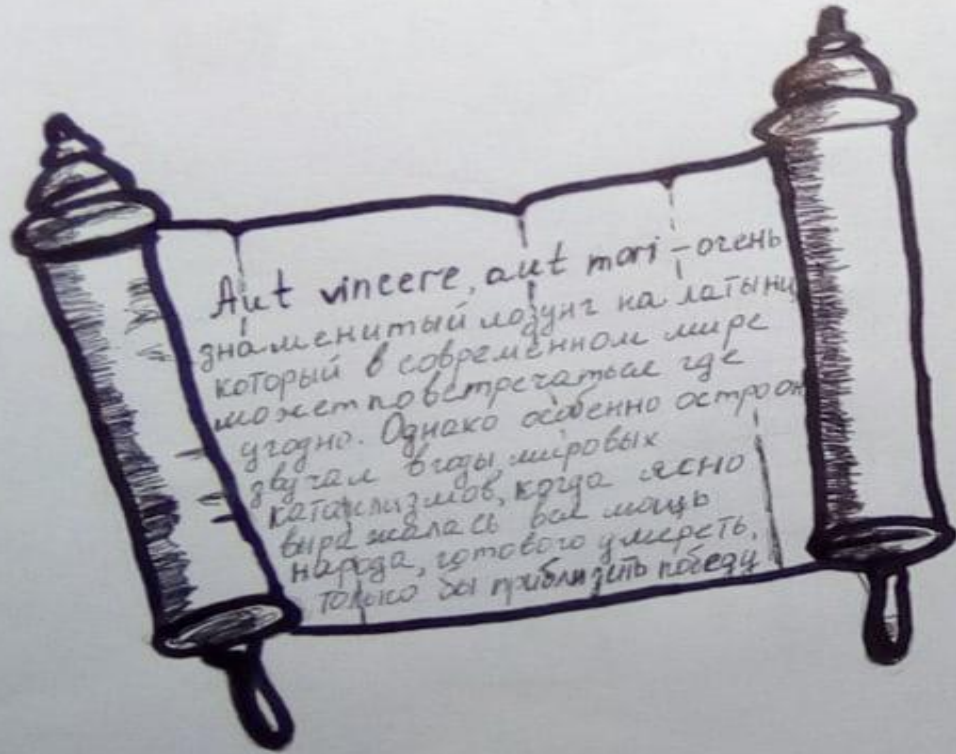 Aut vincere, aut mori – очень
знаменитый лозунг на латыни
который в современном мире
может повстречаться где
угодно. Однако особенно остро он
звучал в годы мировых
катаклизмов, когда ясно
выражалась вся мощь
народа, готового умереть,
только бы приблизить победу